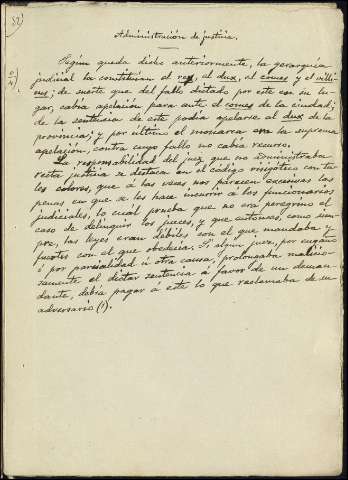 52)
Administración de justicia.
Según queda dicho anteriormente, la gerarquía
judicial la constituían el rex, el dux, el comes y el villi-
cus; de suerte que del fallo dictado por este en su lu-
gar, cabía apelación para ante el comes de la ciudad;
de la sentencia de este podía apelarse al dux de la
provincia; y por último el monarca era la suprema
apelación, contra cuyo fallo no cabía recurso.
La responsabilidad del juez que no administraba
recta justicia se destaca en el código visigótico con ta-
les colores, que á las veces nos parecen excesivas las
penas en que se les hace incurrir á los funcionarios
judiciales, lo cual prueba que no era peregrino el
caso de delinquir los jueces, y que entonces, como siem-
pre, las leyes eran débiles con el que mandaba y
fuertes con el que obedecía. Si algun juez, por engaño
ó por parcialidad ú otra causa, prolongaba malicio-
samente el dictar sentencia á favor de un deman-
dante, debía pagar á este lo que reclamaba de su
adversario (1).